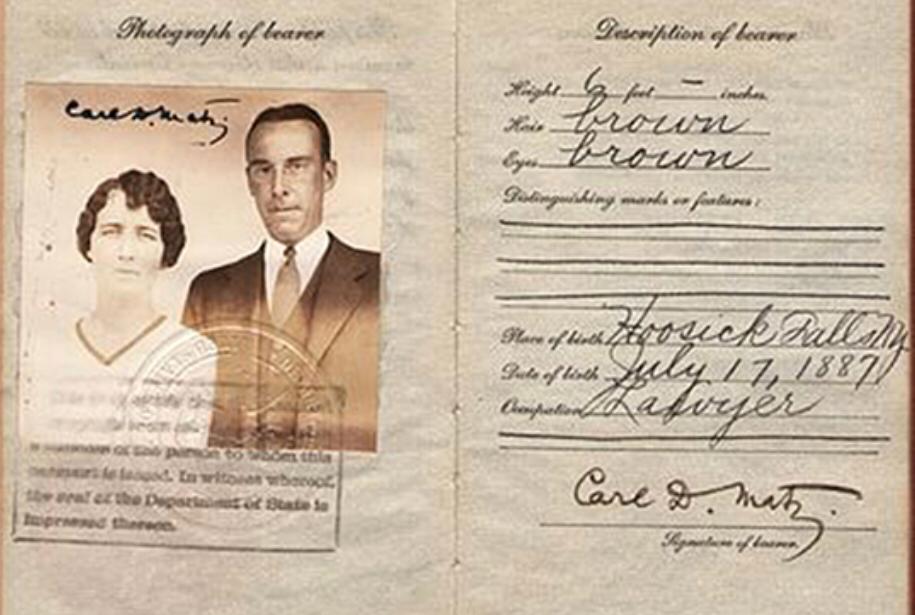 Photograph of bearer
Carl D. Matz
person to whom this
is issued. In witness whereof,
the seal of the Department of State is
impressed thereon.
Description of bearer
Height 6 feet – inches.
Hair brown
Eyes brown
Distinguishing marks or features:
Place of birth Hoosick Falls Ny
Date of birth July 17, 1887
Occupation Lawyer
Carl D. Matz.
Signature of bearer.